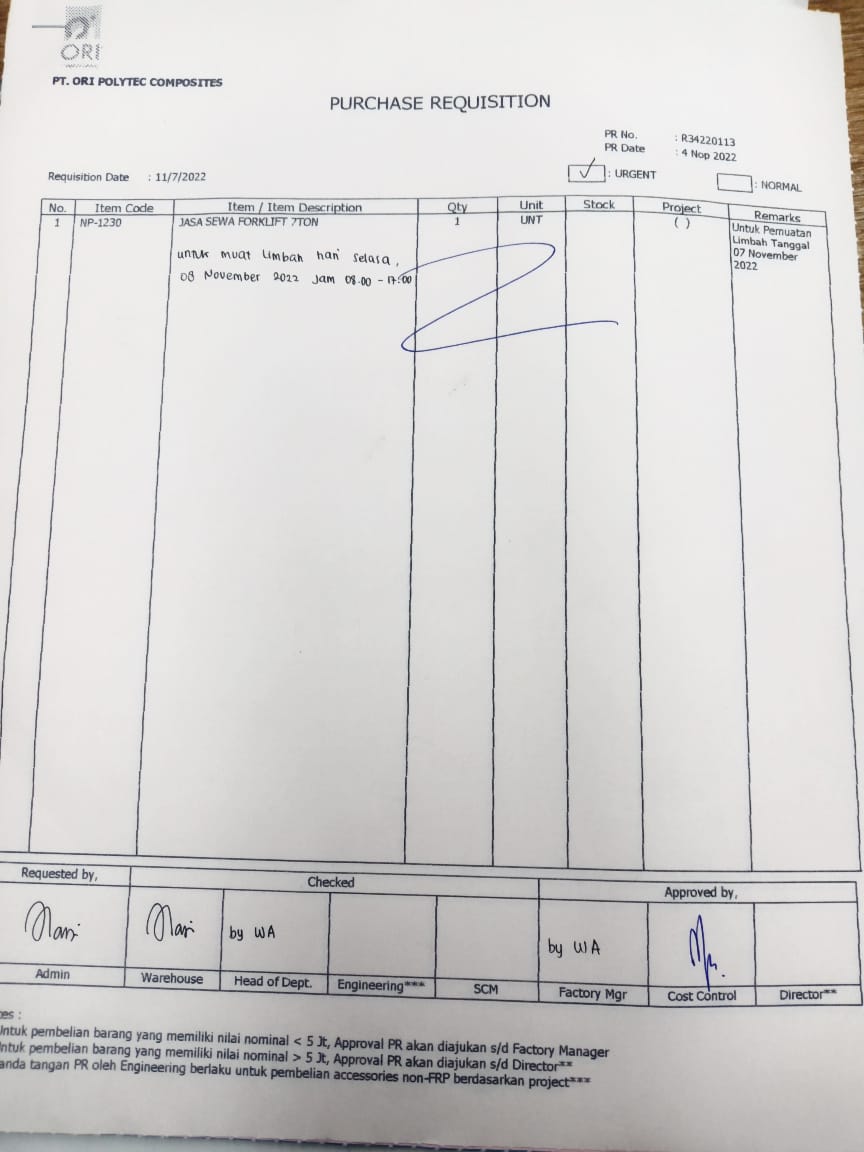 ORI
PT. ORI POLYTEC COMPOSITES
PURCHASE REQUISITION
PR No. : R34220113
PR Date : 4 Nop 2022
Requisition Date : 11/7/2022
: URGENT
: NORMAL
No. Item Code Item / Item Description Qty Unit Stock Project Remarks
1 NP-1230 JASA SEWA FORKLIFT 7TON 1 UNT ( ) Untuk Pemuatan
Limbah Tanggal
07 November
2022
untuk muat limbah hari selasa,
08 November 2022 Jam 08.00 - 17:00
Requested by, Checked Approved by,
by WA
by WA
Admin Warehouse Head of Dept. Engineering*** SCM Factory Mgr Cost Control Director**
es :
Untuk pembelian barang yang memiliki nilai nominal < 5 Jt, Approval PR akan diajukan s/d Factory Manager
ntuk pembelian barang yang memiliki nilai nominal > 5 Jt, Approval PR akan diajukan s/d Director**
anda tangan PR oleh Engineering berlaku untuk pembelian accessories non-FRP berdasarkan project***